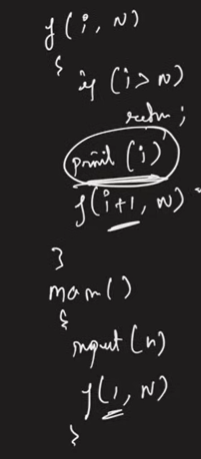 f(i, N)
{
if (i > N)
return;
print(i)
f(i+1, N)
}
main()
{
input(n)
f(1, N)
}